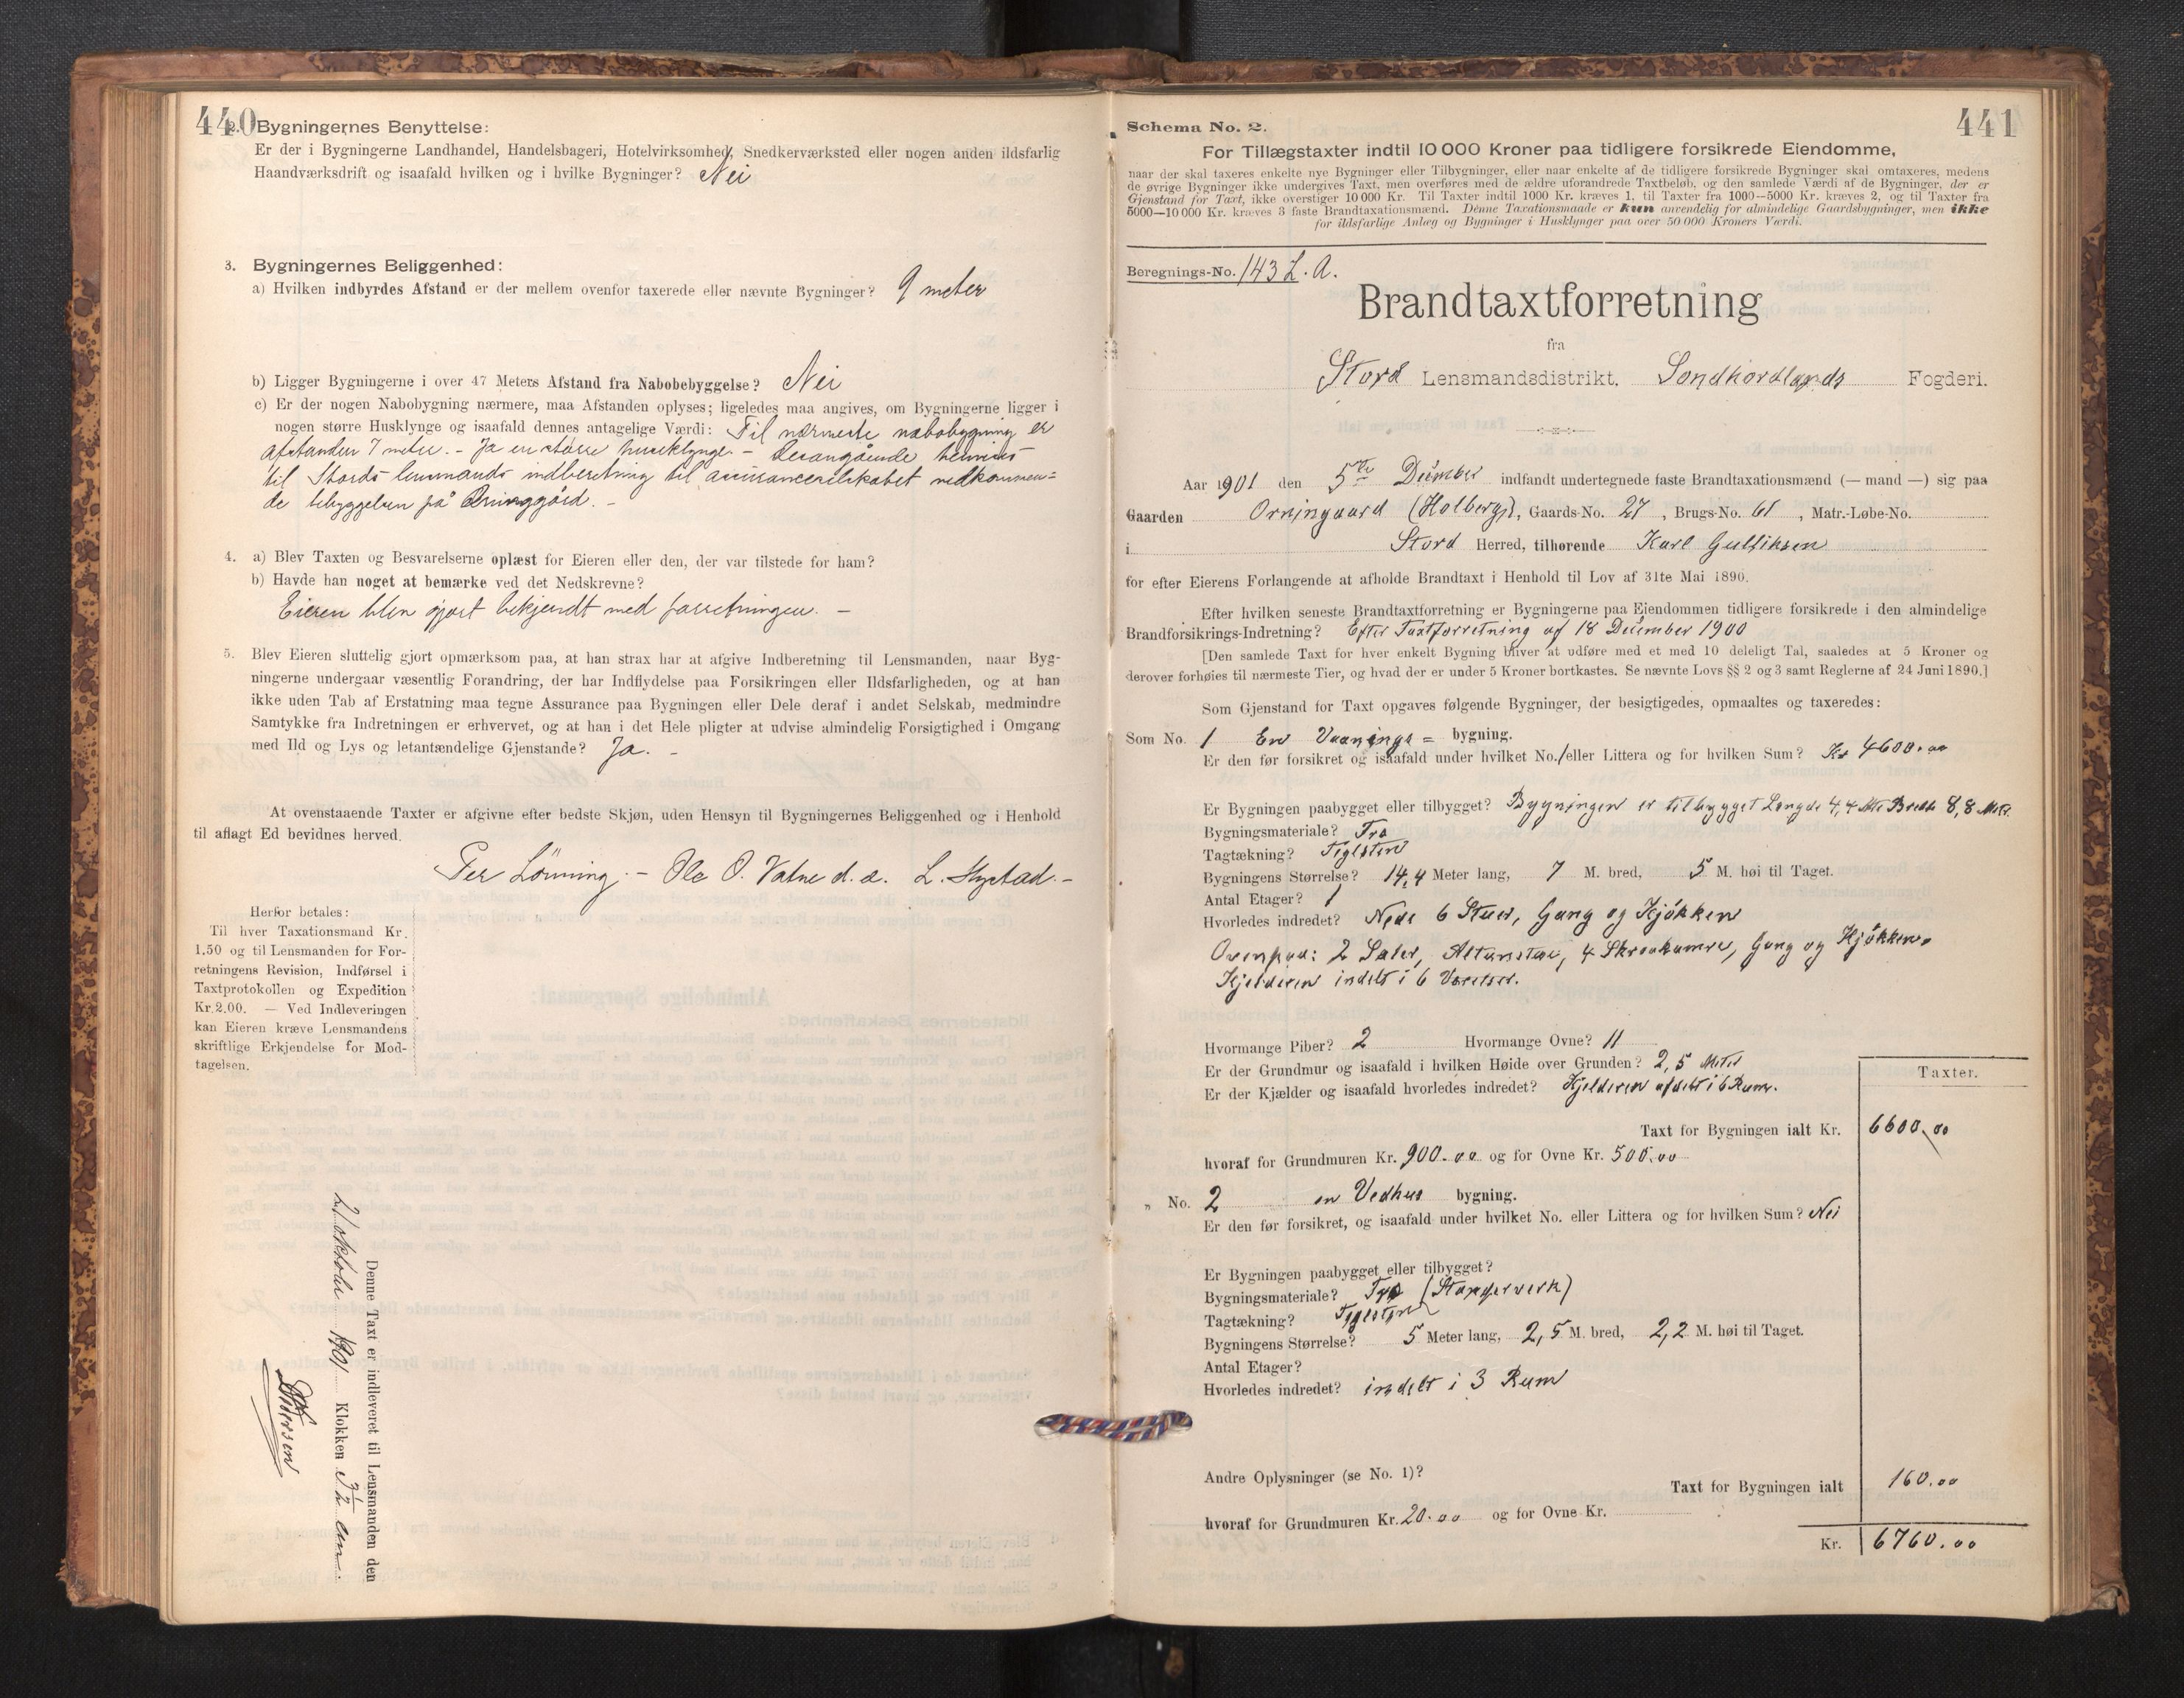 440
2. Bygningernes Benyttelse:
Er der i Bygningerne Landhandel, Handelsbageri, Hotelvirksomhed, Snedkerværksted eller nogen anden ildsfarlig
Haandværksdrift og isaafald hvilken og i hvilke Bygninger? Nei
3. Bygningernes Beliggenhed:
a) Hvilken indbyrdes Afstand er der mellem ovenfor taxerede eller nævnte Bygninger? 9 meter
b) Ligger Bygningerne i over 47 Meters Afstand fra Nabobebyggelse? Nei
c) Er der nogen Nabobygning nærmere, maa Afstanden oplyses; ligeledes maa angives, om Bygningerne ligger i
nogen større Husklynge og isaafald dennes antagelige Værdi: Til nærmeste nabobygning er
afstanden 7 meter. - Ja en större huseklynge. - Desangående henvises
til Stords lensmands indberetning til assuranceselskabet vedkommen=
de bebyggelsen på Orninggård. -
4. a) Blev Taxten og Besvarelserne oplæst for Eieren eller den, der var tilstede for ham?
b) Havde han noget at bemærke ved det Nedskrevne?
Eieren blev gjort bekjendt med forretningen. -
5. Blev Eieren sluttelig gjort opmærksom paa, at han strax har at afgive Indberetning til Lensmanden, naar Byg-
ningerne undergaar væsentlig Forandring, der har Indflydelse paa Forsikringen eller Ildsfarligheden, og at han
ikke uden Tab af Erstatning maa tegne Assurance paa Bygningen eller Dele deraf i andet Selskab, medmindre
Samtykke fra Indretningen er erhvervet, og at han i det Hele pligter at udvise almindelig Forsigtighed i Omgang
med Ild og Lys og letantændelige Gjenstande? Ja. -
At ovenstaaende Taxter er afgivne efter bedste Skjøn, uden Hensyn til Bygningernes Beliggenhed og i Henhold
til aflagt Ed bevidnes herved.
Per Lönning. - Ole O. Vatne d. æ. L. Hystad. -
Herfor betales:
Til hver Taxationsmand Kr.
1.50 og til Lensmanden for For-
retningens Revision, Indførsel i
Taxtprotokollen og Expedition
Kr. 2.00. — Ved Indleveringen
kan Eieren kræve Lensmandens
skriftlige Erkjendelse for Mod-
tagelsen.
Denne Taxt er indleveret til Lensmanden den
21 oktober 1901 Klokken 3½ em.
441
Schema No. 2.
For Tillægstaxter indtil 10 000 Kroner paa tidligere forsikrede Eiendomme,
naar der skal taxeres enkelte nye Bygninger eller Tilbygninger, eller naar enkelte af de tidligere forsikrede Bygninger skal omtaxeres, medens
de øvrige Bygninger ikke undergives Taxt, men overføres med de ældre uforandrede Taxtbeløb, og den samlede Værdi af de Bygninger, der er
Gjenstand for Taxt, ikke overstiger 10 000 Kr. Til Taxter indtil 1000 Kr. kræves 1, til Taxter fra 1000—5000 Kr. kræves 2, og til Taxter fra
5000—10 000 Kr. kræves 3 faste Brandtaxationsmænd. Denne Taxationsmaade er kun anvendelig for almindelige Gaardsbygninger, men ikke
for ildsfarlige Anlæg og Bygninger i Husklynger paa over 50 000 Kroners Værdi.
Beregnings-No. 143 L. A.
Brandtaxtforretning
fra
Stord Lensmandsdistrikt. Søndhordlands Fogderi.
Aar 1901 den 5te December indfandt undertegnede faste Brandtaxationsmænd (— mand —) sig paa
Gaarden Orningaard (Holberg), Gaards-No. 27, Brugs-No. 61, Matr.-Løbe-No.
i Stord Herred, tilhørende Karl Gulliksen
for efter Eierens Forlangende at afholde Brandtaxt i Henhold til Lov af 31te Mai 1890.
Efter hvilken seneste Brandtaxtforretning er Bygningerne paa Eiendommen tidligere forsikrede i den almindelige
Brandforsikrings-Indretning? Efter Taxtforretning af 18 December 1900
[Den samlede Taxt for hver enkelt Bygning bliver at udføre med et med 10 deleligt Tal, saaledes at 5 Kroner og
derover forhøies til nærmeste Tier, og hvad der er under 5 Kroner bortkastes. Se nævnte Lovs §§ 2 og 3 samt Reglerne af 24 Juni 1890.]
Som Gjenstand for Taxt opgaves følgende Bygninger, der besigtigedes, opmaaltes og taxeredes:
Som No. 1 En Vaanings = bygning.
Er den før forsikret og isaafald under hvilket No./eller Littera og for hvilken Sum? Kr 4600.00
Er Bygningen paabygget eller tilbygget? Bygningen er tilbygget Længde 4,4 Mtr Bredde 8,8 Metr.
Bygningsmateriale? Træ
Tagtækning? Teglsten
Bygningens Størrelse? 14,4 Meter lang, 7 M. bred, 5 M. høi til Taget.
Antal Etager? 1
Hvorledes indredet? Nede 6 Stuer, Gang og Kjøkken
Ovenpaa: 2 Saler, Altanstue, 4 Skraakamre, Gang og Kjøkken.
Kjelderen indelt i 6 Værelser.
Hvormange Piber? 2 Hvormange Ovne? 11
Er der Grundmur og isaafald i hvilken Høide over Grunden? 2,5 Meter
Er der Kjælder og isaafald hvorledes indredet? Kjelderen afdelt i 6 Rum.
Taxter.
Taxt for Bygningen ialt Kr. 6600.00
hvoraf for Grundmuren Kr. 900.00 og for Ovne Kr. 500.00
„ No. 2 en Vedhus bygning.
Er den før forsikret, og isaafald under hvilket No. eller Littera og for hvilken Sum? Nei
Er Bygningen paabygget eller tilbygget?
Bygningsmateriale? Træ (Stangverk)
Tagtækning? Teglsten
Bygningens Størrelse? 5 Meter lang, 2,5 M. bred, 2,2 M. høi til Taget.
Antal Etager?
Hvorledes indredet? indelt i 3 Rum
Andre Oplysninger (se No. 1)?
Taxt for Bygningen ialt 160.00
hvoraf for Grundmuren Kr. 20.00 og for Ovne Kr.
Kr. 6760.00